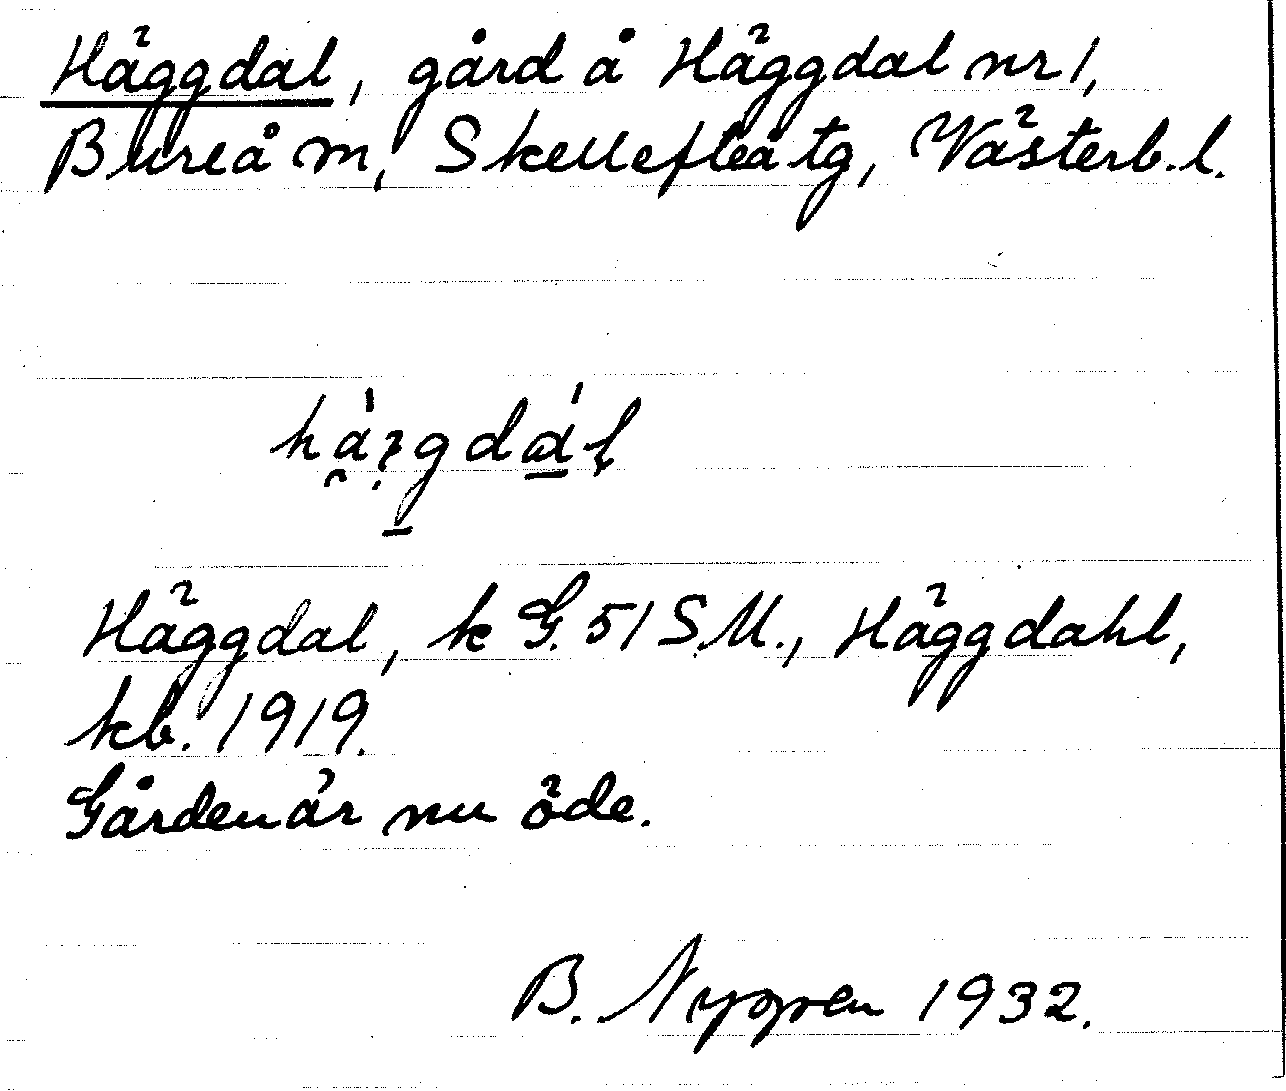 Häggdal, gård å Häggdal nr 1,
Bureå m, Skellefteå tg, Västerb. l.
Häggdal, k G. 51 S.M., Häggdahl,
kb. 1919.
Gården är nu öde.
B. Nygren 1932.